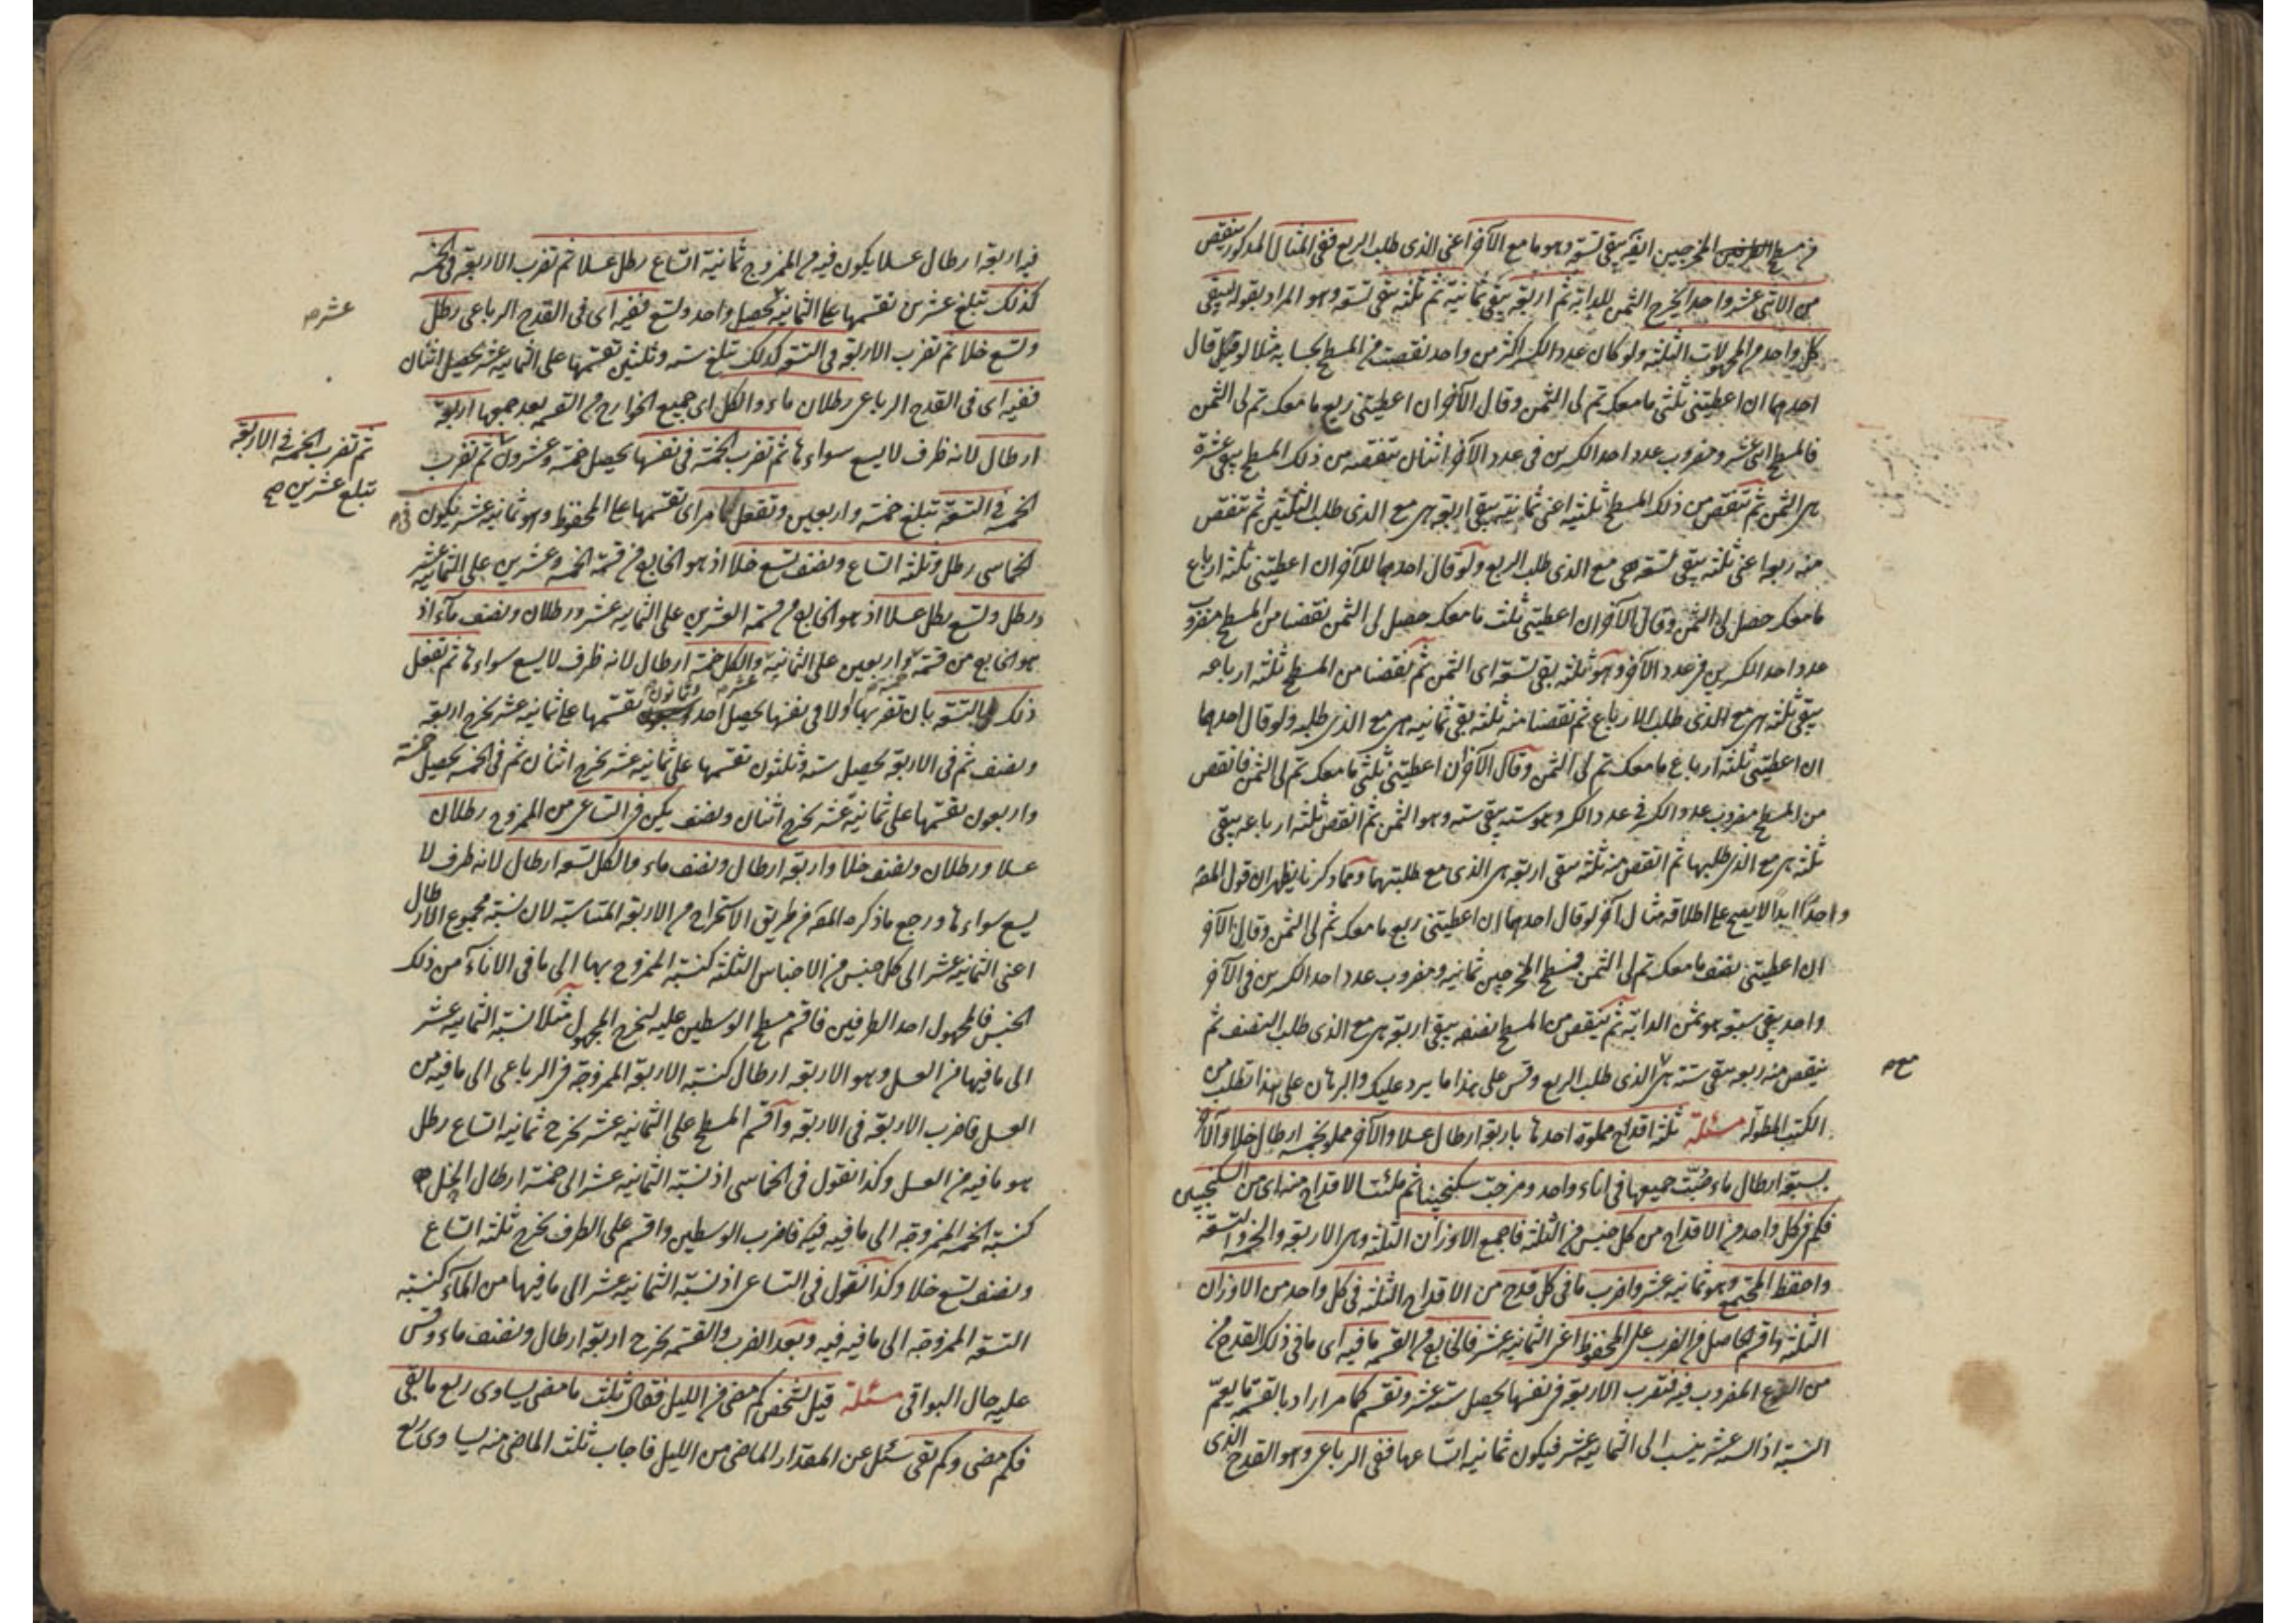 من مسطح المخرجين ايضا يبقى تسعة وهو ما مع الآخر اعنى الذى طلب الربع ففى المثال المذكور ينقص
من الاثنى عشر واحد ليخرج الثمن للدابة ثم اربعة يبقى ثمانية ثم ثلثة يبقى تسعة وهو المراد بقوله ليبقى
كل واحد من المجهولات الثلثة ولو كان عدد الكسر اكثر من واحد نقصت من المسطح بحسابه مثلا لو قيل قال
احدهما ان اعطيتنى ثلثى ما معك تم لى الثمن وقال الآخر ان اعطيتنى ربع ما معك تم لى الثمن
فالمسطح اثنى عشر ومضروب عدد احد الكسرين فى عدد الآخر اثنان تنقصه من ذلك المسطح يبقى عشرة
هى الثمن ثم تنقص من ذلك المسطح ثلثيه اعنى ثمانية يبقى اربعة هى مع الذى طلب الثلثين ثم تنقص
منه ربعه اعنى ثلثة يبقى تسعة هى مع الذى طلب الربع ولو قال احدهما للآخر ان اعطيتنى ثلثة ارباع
ما معك حصل لى الثمن وقال الآخر ان اعطيتنى ثلث ما معك حصل لى الثمن نقصنا من المسطح مضروب
عدد احد الكسرين فى عدد الآخر وهو ثلثة بقى تسعة اى الثمن ثم نقصنا من المسطح ثلثة ارباعه
يبقى ثلثة هى مع الذى طلب الارباع ثم نقصنا منه ثلثه بقى ثمانية هى مع الذى طلبه ولو قال احدهما
ان اعطيتنى ثلثة ارباع ما معك تم لى الثمن وقال الآخر ان اعطيتنى ثلثى ما معك تم لى الثمن فانقص
من المسطح مضروب عدد الكسر فى عدد الكسر وهو ستة يبقى ستة وهو الثمن ثم انقص ثلثة ارباعه يبقى
ثلثة هى مع الذى طلبها ثم انقص منه ثلثه يبقى اربعة هى الذى مع طلبتهما ومما ذكرنا يظهر ان قول المص
واحدًا ابدًا لا يصح على اطلاقه مثال آخر لو قال احدهما ان اعطيتنى ربع ما معك تم لى الثمن وقال الآخر
ان اعطيتنى نصف ما معك تم لى الثمن فمسطح المخرجين ثمانية ومضروب عدد احد الكسرين فى الآخر
واحد يبقى سبعة هو ثمن الدابة ثم ينقص من المسطح نصفه يبقى اربعة هى مع الذى طلب النصف ثم
ينقص منه ربعه يبقى ستة هى الذى طلب الربع وقس على هذا ما يرد عليك والبرهان على هذا تطلب من
مع
الكتب المطولة مسئلة ثلثة اقداح مملوة احدها باربعة ارطال عسلا والآخر مملو بخمسة ارطال خلا والآخر
بتسعة ارطال ماء صبت جميعها فى اناء واحد ومزجت سكنجبينا ثم ملئت الاقداح منه اى من السكنجبين
فكم فى كل واحد من الاقداح من كل جنس من الثلثة فاجمع الاوزان الثلثة وهى الاربعة والخمسة والتسعة
واحفظ المجتمع وهو ثمانية عشر واضرب ما فى كل قدح من الاقداح الثلثة فى كل واحد من الاوزان
الثلثة واقسم الحاصل من الضرب على المحفوظ اعنى الثمانية عشر فالخارج من القسمة ما فيه اى ما فى ذلك القدح من
من النوع المضروب فيه فتضرب الاربعة فى نفسها يحصل ستة عشر وتقسم كما مر اراد بالقسمة ما يعم
النسبة اذ الستة عشر ينسب الى الثمانية عشر فيكون ثمانية اتساعها ففى الرباعى وهو القدح الذى
فيه اربعة ارطال عسلا يكون فيه من الممزوج ثمانية اتساع رطل عسلا ثم تضرب الاربعة فى الخمسة
كذلك تبلغ عشرين تقسمها على الثمانية يحصل واحد وتسع ففيه اى فى القدح الرباعى رطل
عشر
وتسع خلا ثم تضرب الاربعة فى التسعة كذلك تبلغ ستة وثلثين تقسمها على الثمانية عشر يحصل اثنان
ففيه اى فى القدح الرباعى رطلان ماء والكل اى جميع الخوارج من القسمة بعد جمعها اربعة
ارطال لانه ظرف لا يسع سواءها ثم تضرب الخمسة فى نفسها يحصل خمسة وعشرون ثم تضرب
ثم تضرب الخمسة فى الاربعة
تبلغ عشرين صح
الخمسة فى التسعة تبلغ خمسة واربعين وتفعل كما مر اى تقسمها على المحفوظ وهو ثمانية عشر يكون فى
الخماسى رطل وثلثة اتساع ونصف تسع خلا اذ هو الخارج من قسمة الخمسة وعشرين على الثمانية عشر
ورطل وتسع رطل عسلا اذ هو الخارج من قسمة العشرين على الثمانية عشر ورطلان ونصف ماء اذ
هو الخارج من قسمة خمسة واربعين على الثمانية عشر والكل خمسة ارطال لانه ظرف لا يسع سواءها ثم تفعل
ذلك بالتسعة بان تضربها اولا فى نفسها يحصل احد وثمانون تقسمها على ثمانية عشر يخرج اربعة
ونصف ثم فى الاربعة يحصل ستة وثلثون تقسمها على ثمانية عشر يخرج اثنان ثم فى الخمسة يحصل خمسة
واربعون تقسمها على ثمانية عشر يخرج اثنان ونصف يكن فى التساعى من الممزوج رطلان
عسلا ورطلان ونصف خلا واربعة ارطال ونصف ماء فالكل تسعة ارطال لانه ظرف لا
يسع سواءها ورجع ما ذكره المص فى طريق الاستخراج من الاربعة المتناسبة لان نسبة مجموع الارطال
اعنى الثمانية عشر الى كل جنس من الاجناس الثلثة كنسبة الممزوج بها الى ما فى الاناء من ذلك
الجنس فالمجهول احد الطرفين فاقسم مسطح الوسطين عليه ليخرج المجهول مثلا نسبة الثمانية عشر
الى ما فيها من العسل وهو الاربعة ارطال كنسبة الاربعة الممزوجة فى الرباعى الى ما فيه من
العسل فاضرب الاربعة فى الاربعة واقسم المسطح على الثمانية عشر يخرج ثمانية اتساع رطل
هو ما فيه من العسل وكذا نقول فى الخماسى اذ نسبة الثمانية عشر الى خمسة ارطال الخل
كنسبة الخمسة الممزوجة الى ما فيه فيه فاضرب الوسطين واقسم على الطرف يخرج ثلثة اتساع
ونصف تسع خلا وكذا نقول فى التساعى اذ نسبة الثمانية عشر الى ما فيها من الماء كنسبة
التسعة الممزوجة الى ما فيه فيه وبعد الضرب والقسمة يخرج اربعة ارطال ونصف ماء وقس
عليه حال البواقى مسئلة قيل لشخص كم مضى من الليل فقال ثلث ما مضى يساوى ربع ما بقى
فكم مضى وكم بقى سئل عن المقدار الماضى من الليل فاجاب ثلث الماضى منه يساوى ربع